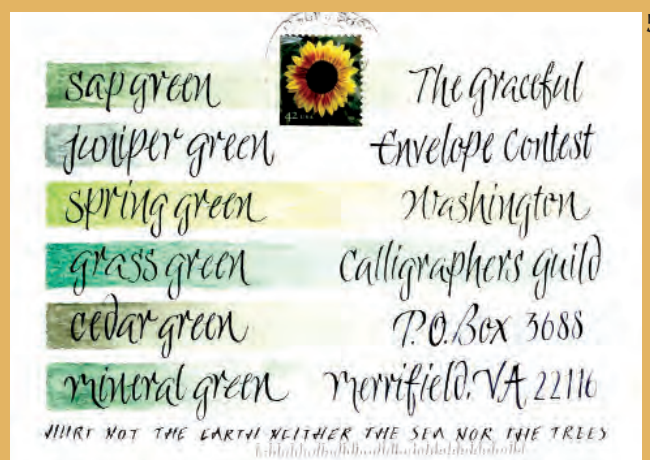 sap green
juniper green
spring green
grass green
cedar green
mineral green
The Graceful
Envelope Contest
Washington
Calligraphers Guild
P.O. Box 3688
Merrifield, VA 22116
HURT NOT THE EARTH NEITHER THE SEA NOR THE TREES
42
5